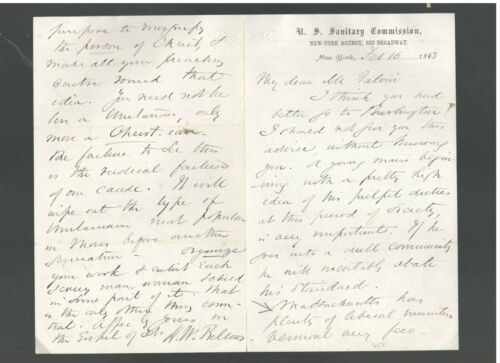 U. S. Sanitary Commission,
NEW-YORK AGENCY, 823 BROADWAY.
New York, Feb 16 1863
My dear Mr
I think you had
better go to Burlington!
I should not give you this
advice without knowing
you. A young man begin-
ning with a pretty high
idea of his pulpit duties
at this period of Society,
is very important. If he
goes into a dull community
he will inevitably abate
his standard.
Massachusetts has
plenty of liberal
Vermont very few
purpose to magnify
the person of Christ, &
make all your preaching
centre round that
idea. You need not be
less a Unitarian, only
more a Christ-ian.
The failure to see this
is the radical failure
of our cause. It will
wipe out the type of
Unitarianism most popular
in Mass before another
generation - Organize
your work & enlist each
& every man, woman & child
in some part of it. That
is the only other thing
Affecly yours in
the Gospel of H. W. Bellows